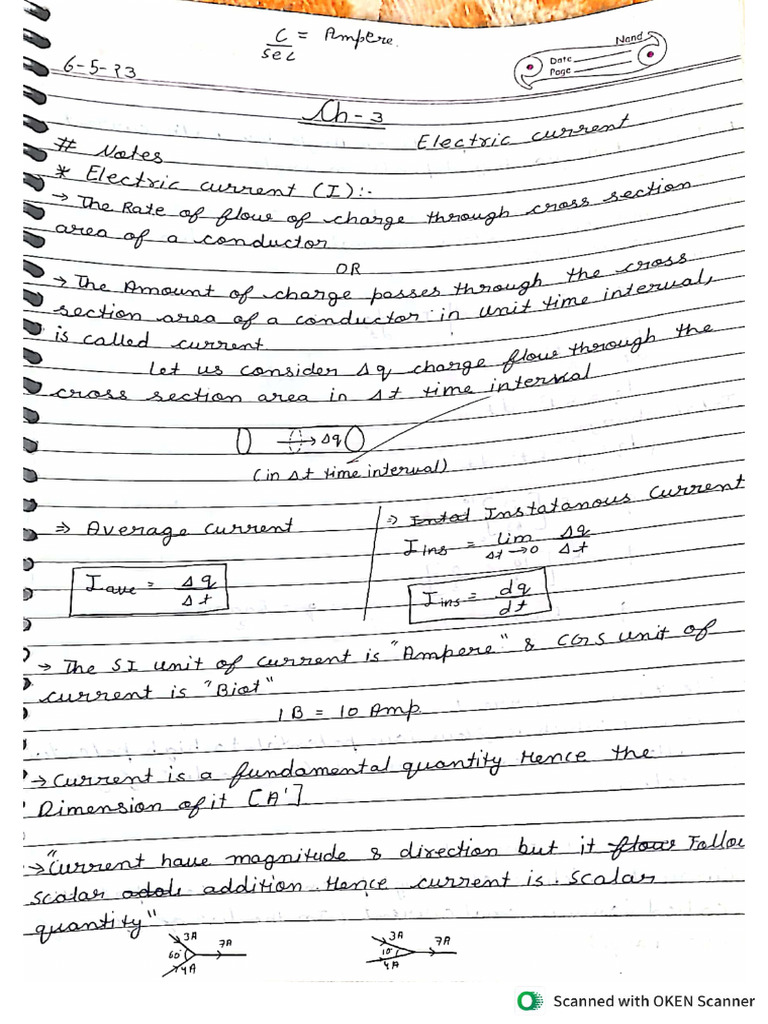 C/sec = Ampere.
Nand
Date
Page
6-5-23
Ch-3
Electric current
# Notes
* Electric current (I):-
→ The Rate of flow of charge through cross section
area of a conductor
OR
→ The Amount of charge passes through the cross
section area of a conductor in unit time interval,
is called current
Let us consider Δq charge flow through the
cross section area in Δt time interval
→Δq
(in Δt time interval)
⇒ Average current
I ave = Δq/Δt
⇒ Instatanous Current
I ins = lim Δt→0 Δq/Δt
I ins = dq/dt
→ The SI unit of current is "Ampere" & CGS unit of
current is "Biot"
1 B = 10 Amp
→ Current is a fundamental quantity Hence the
Dimension of it [A']
→ "Current have magnitude & direction but it flow Follow
scalar addition. Hence current is scalar
quantity"
3A 7A 60° 4A
3A 7A 10° 4A
Scanned with OKEN Scanner